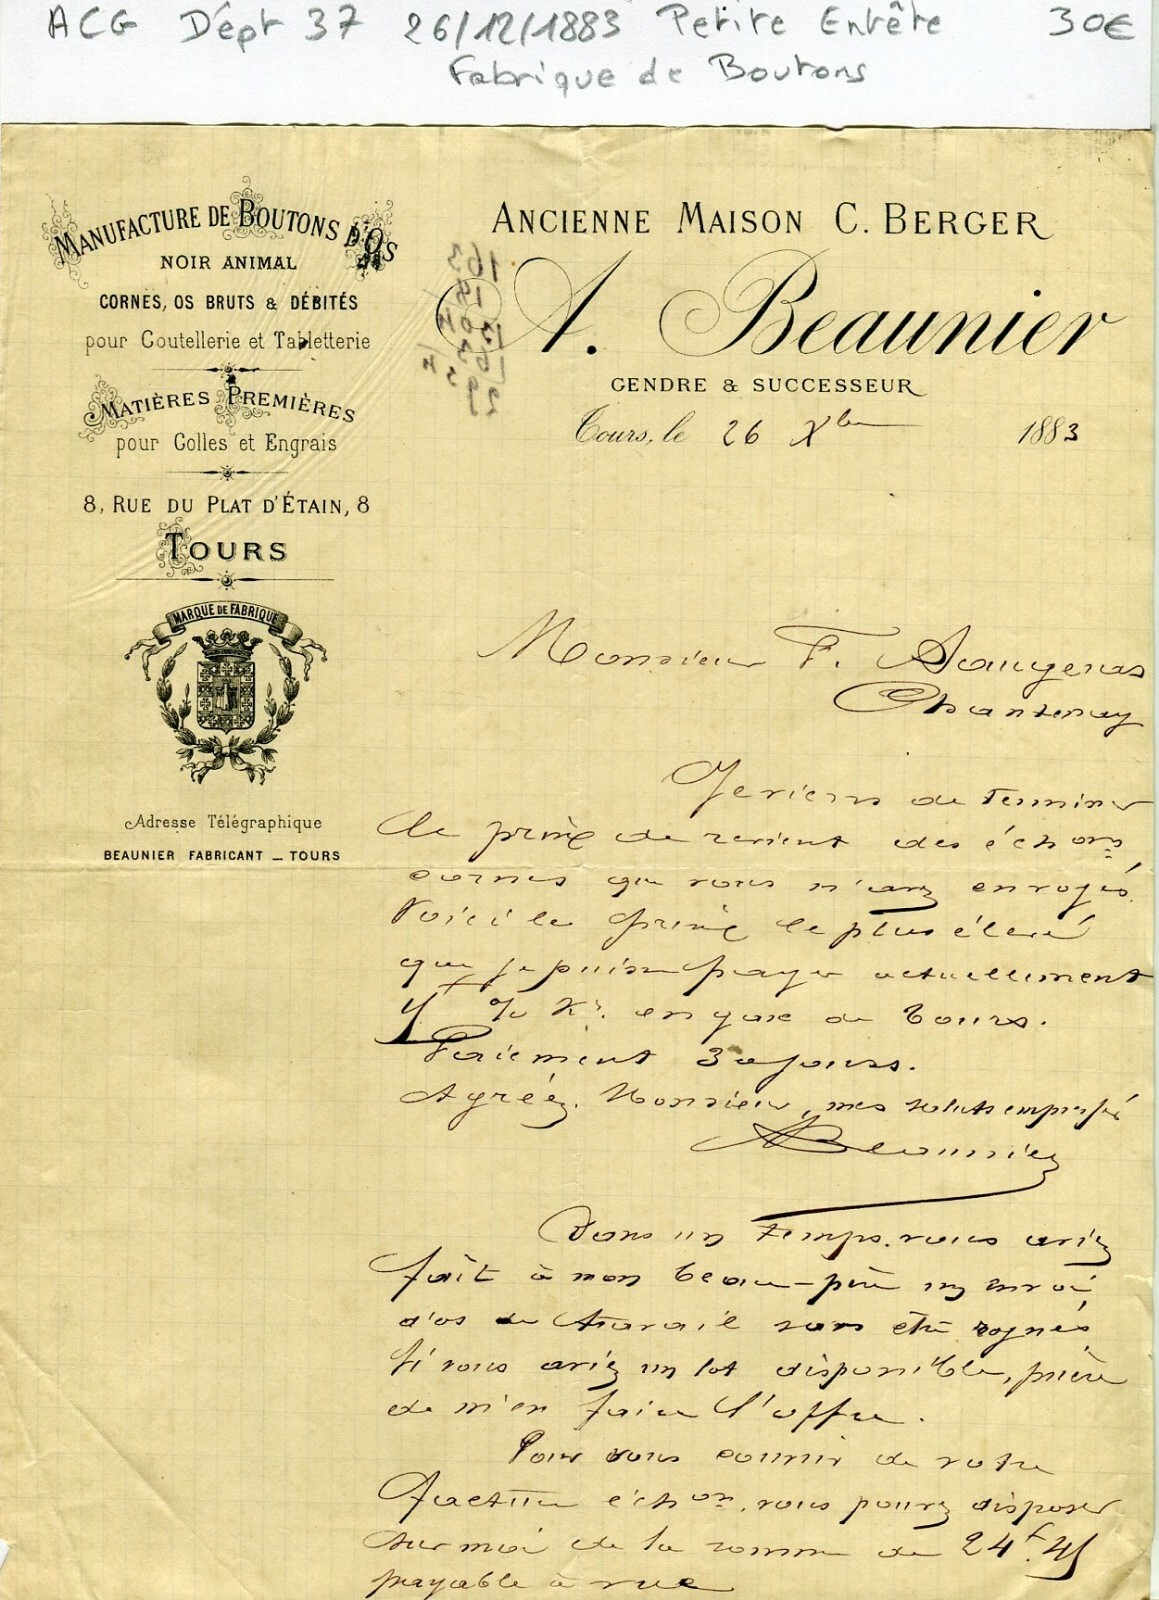 ACG Dépt 37 26/12/1883 Petite Entête 30€
Fabrique de Boutons
MANUFACTURE DE BOUTONS D'OS
NOIR ANIMAL
CORNES, OS BRUTS & DÉBITÉS
pour Coutellerie et Tabletterie
MATIÈRES PREMIÈRES
pour Colles et Engrais
8, RUE DU PLAT D'ÉTAIN, 8
TOURS
MARQUE DE FABRIQUE
Adresse Télégraphique
BEAUNIER FABRICANT _ TOURS
ANCIENNE MAISON C. BERGER
A. Beaunier
GENDRE & SUCCESSEUR
Tours, le 26 Xbre 1883
Monsieur F. Saugeras
Chantenay
Je viens de terminer
le prix de revient des échons
cornes que vous m'avez envoyés.
Voici le prix le plus élevé
que je puisse payer actuellement
% Ks. en gare de Tours.
Paiement 30 jours.
Agréez, Monsieur, mes saluts empressés
ABeaunier
Dans un temps, vous aviez
fait à mon beau-père un envoi
d'os de travail sans être rognés
Si vous aviez un lot disponible, prière
de m'en faire l'offre.
Pour vous couvrir de votre
facture échon, vous pouvez disposer
sur moi de la somme de 24f.45
payable à vue